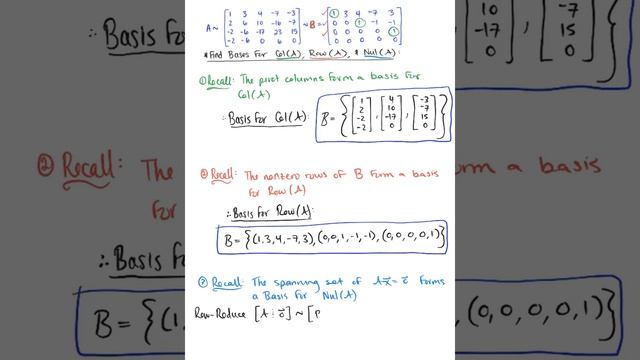 A ~ [1 3 4 -7 -3] ~ B = [1 3 4 -7 3]
[2 6 10 -16 -7] [0 0 1 -1 -1]
[-2 -6 -17 23 15] [0 0 0 0 1]
[-2 -6 0 6 0] [0 0 0 0 0]
* Find Bases For Col(A), Row(A), & Nul(A):
① Recall: The pivot columns form a basis for
Col(A)
∴ Basis For Col(A): B = {[1 2 -2 -2], [4 10 -17 0], [-3 -7 15 0]}
② Recall: The nonzero rows of B form a basis
for Row(A)
∴ Basis for Row(A):
B = {(1,3,4,-7,3),(0,0,1,-1,-1),(0,0,0,0,1)}
③ Recall: The spanning set of Ax⃗ = o⃗ forms
a Basis For Nul(A)
Row-Reduce [A ⋮ o⃗] ~ [
∴ Basis For
② Recall: The
for
∴ Basis
B = {(1,
-17
0
-7
15
0
m a basis
(0,0,0,0,1)}